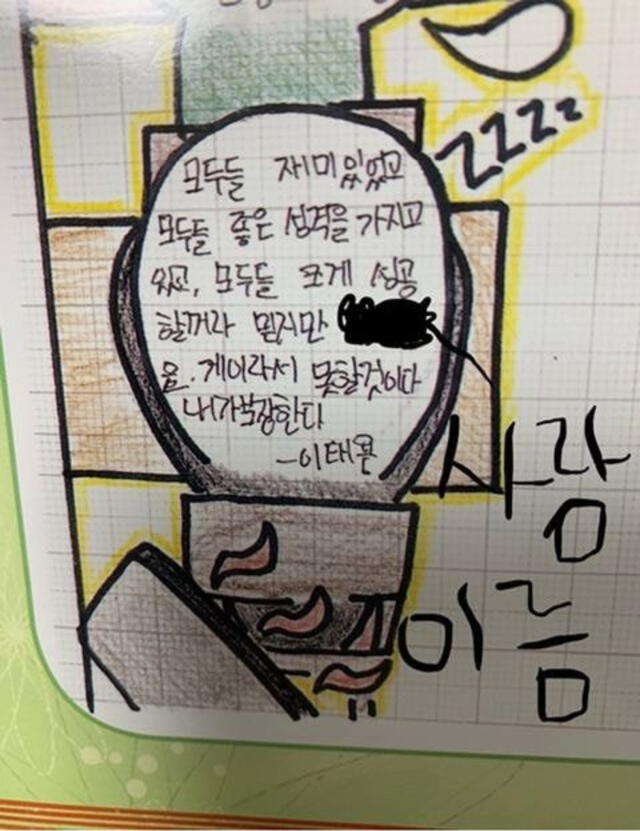 ZZZZ
모두들 재미있었고
모두들 좋은 성격을 가지고
있고, 모두들 크게 성공
할꺼라 믿지만
음. 게이라서 못할것이다
내가 보장한다
-이태환
사람
이름